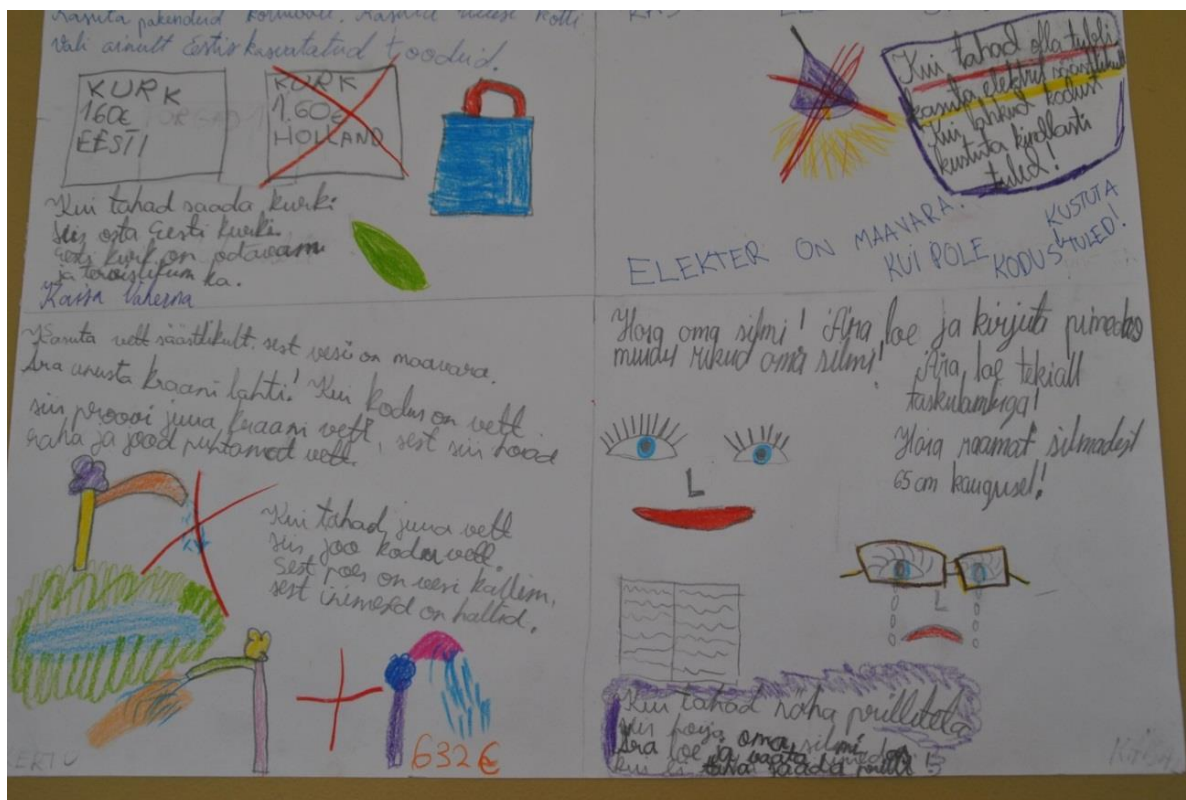 Kasuta pakendeid korduvalt. Kasuta riidest kotti
Vali ainult Eestis kasvatatud tooteid.
KURK
160€
EESTI
KURK
1.60€
HOLLAND
Kui tahad saada kurki
siis osta Eesti kurki.
Eesti kurk on odavam
ja tervislikum ka.
Kaisa
Kui tahad olla tubli
kasuta elektrit säästlikult
Kui lahkud kodust
kustuta kindlasti
tuled!
ELEKTER ON MAAVARA!
KUI POLE KODUS
KUSTUTA
TULED!
Kasuta vett säästlikult, sest vesi on maavara.
Ära unusta kraani lahti! Kui kodus on vett
siis proovi juua kraani vett, sest siis hoiad
raha ja jood puhtamat vett.
Kui tahad juua vett
siis joo kodu vett.
Sest poes on vesi kallim,
sest inimesed on
632€
Hoia oma silmi! Ära loe ja kirjuta pimedas
muidu rikud oma silmi!
Ära loe teki all
taskulambiga!
Hoia raamat silmadest
65 cm kaugusel!
Kui tahad näha prillideta
siis hoia oma silmi
Ära loe ja vaata
saada prille!